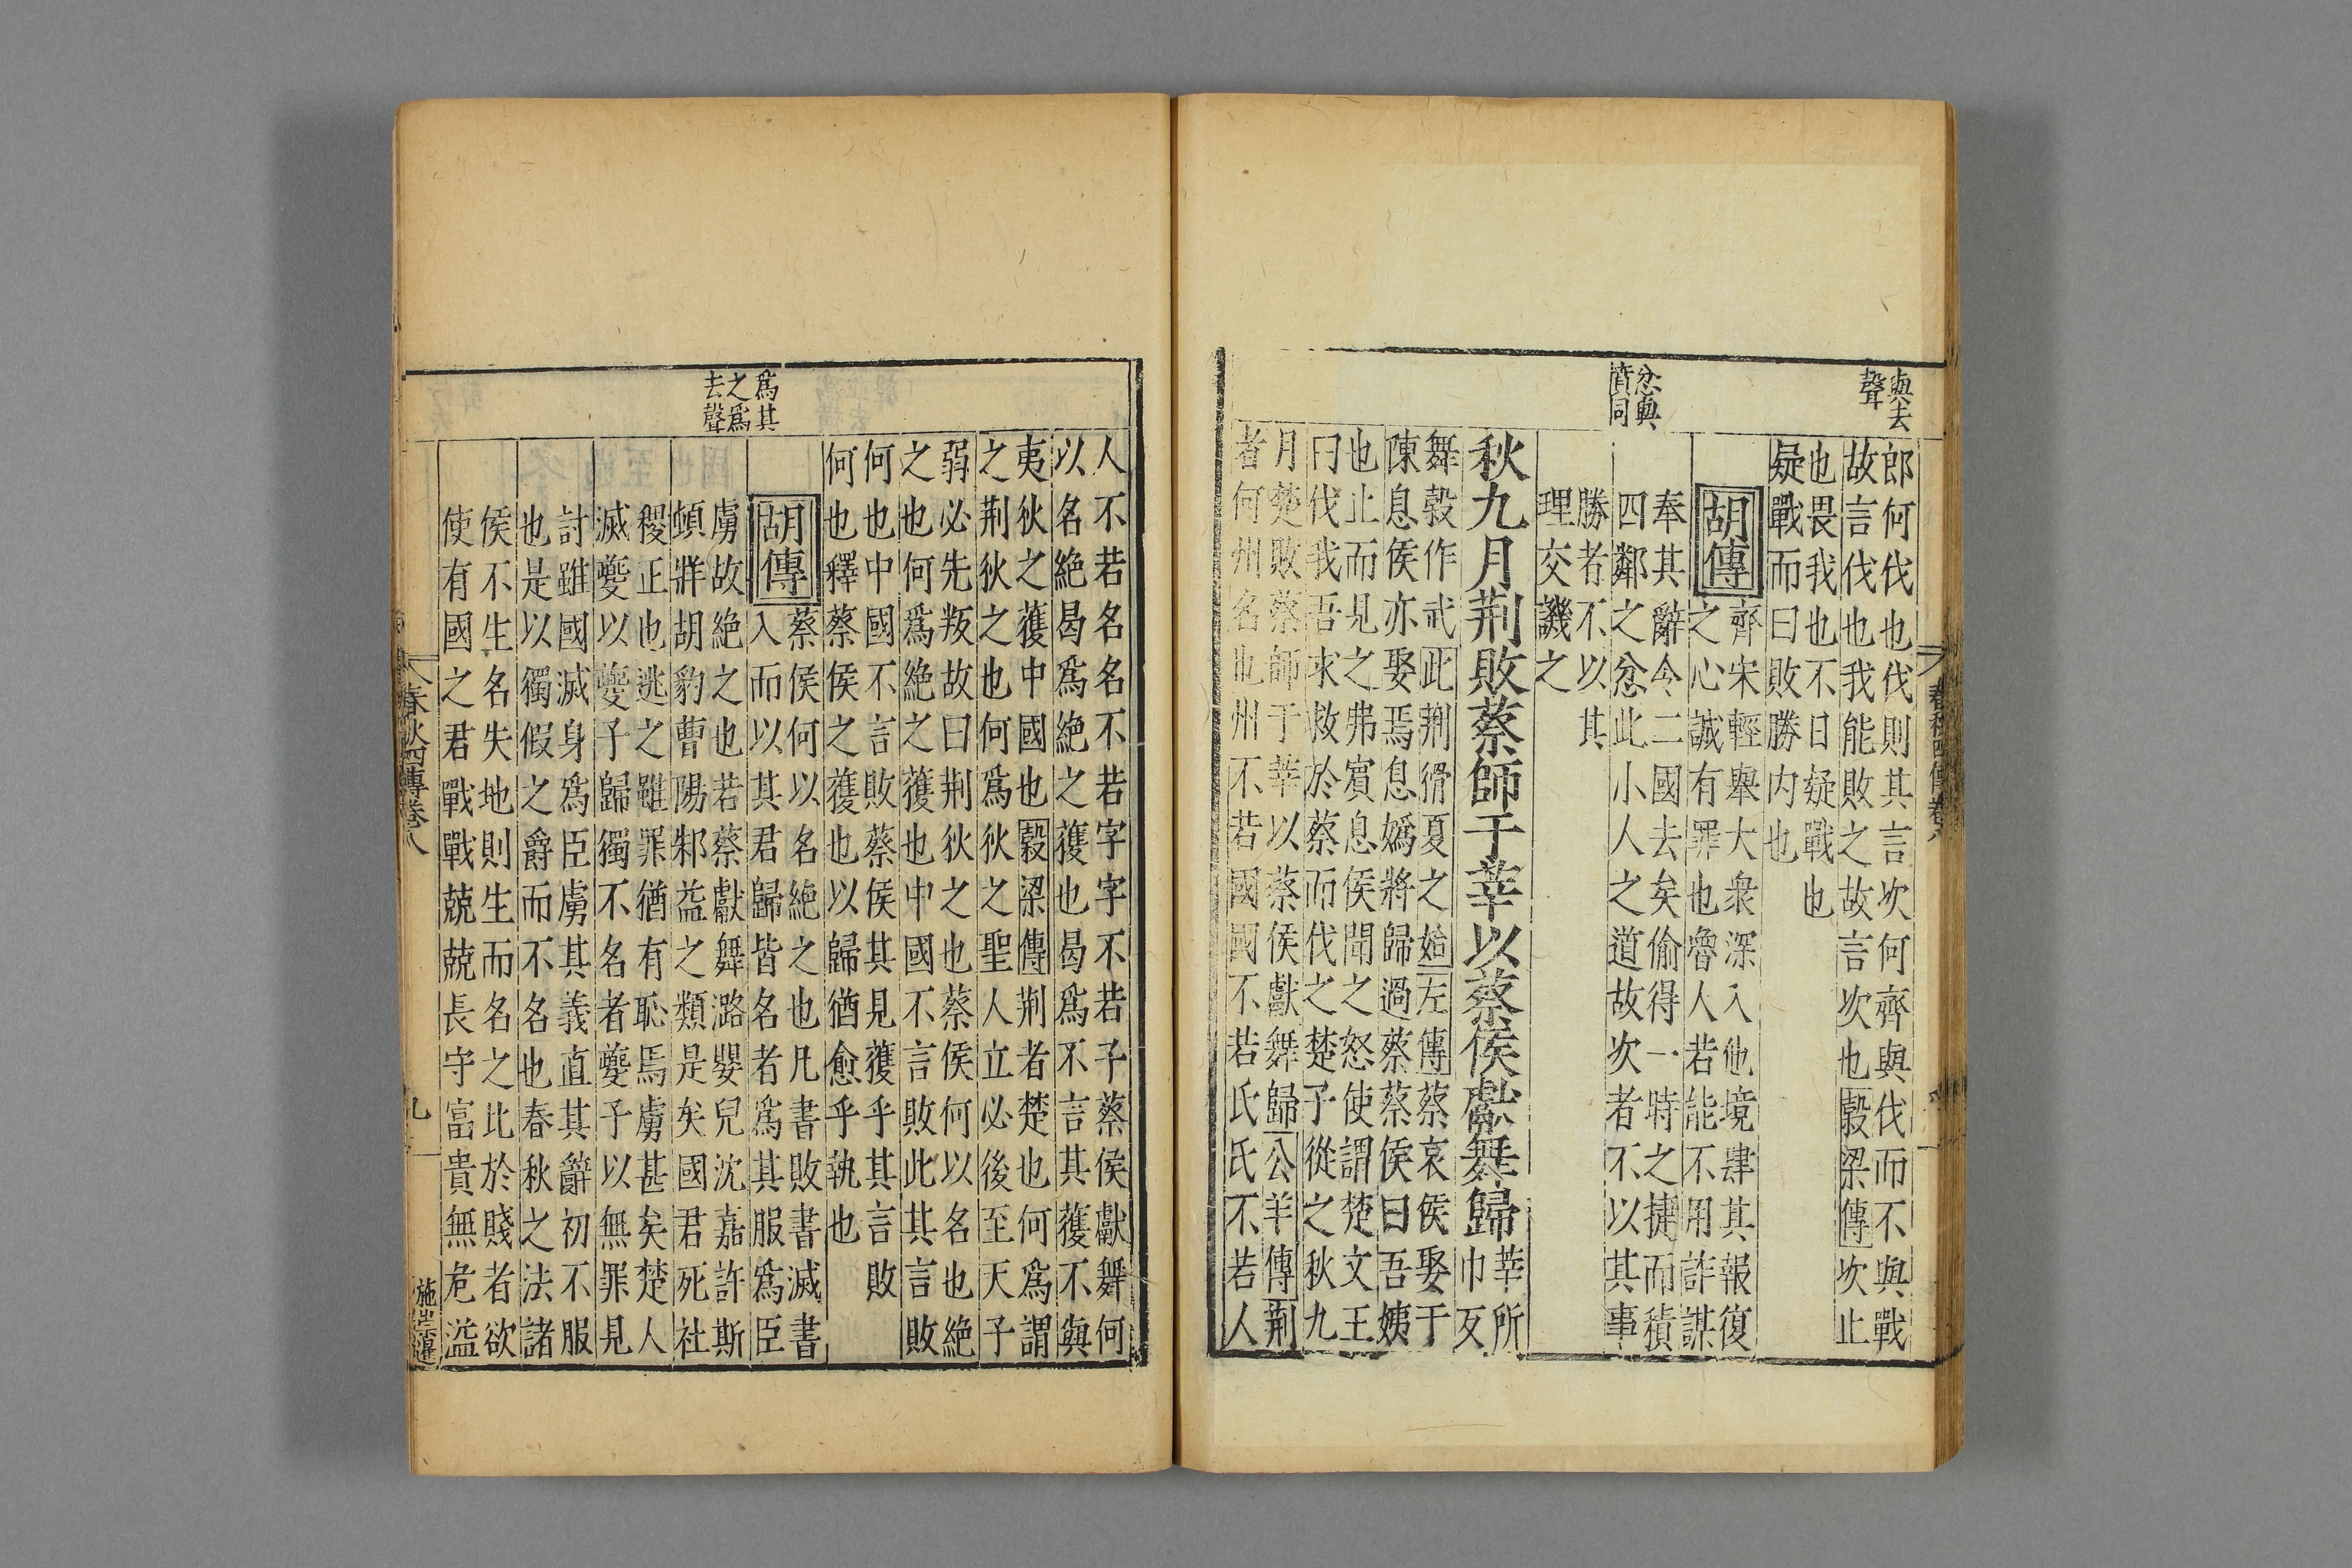 春秋四傳卷八
與去
聲
郎何伐也伐則其言次何齊與伐而不與戰
故言伐也我能敗之故言次也穀梁傳次止
也畏我也不日疑戰也
疑戰而曰敗勝内也
胡傳
齊宋輕舉大衆深入他境肆其報復
之心誠有罪也魯人若能不用詐謀
忿與
憤同
奉其辭令二國去矣偷得一時之捷而積
四鄰之忿此小人之道故次者不以其事
勝者不以其
理交譏之
秋九月荆敗蔡師于莘以蔡侯獻舞歸
莘所
巾反
舞穀作武此荆猾夏之始左傳蔡哀侯娶于
陳息侯亦娶焉息嬀將歸過蔡蔡侯曰吾姨
也止而見之弗賓息侯聞之怒使謂楚文王
曰伐我吾求救於蔡而伐之楚子從之秋九
月楚敗蔡師于莘以蔡侯獻舞歸公羊傳荆
者何州名也州不若國國不若氏氏不若人
人不若名名不若字字不若子蔡侯獻舞何
以名絕曷爲絕之獲也曷爲不言其獲不與
夷狄之獲中國也穀梁傳荆者楚也何爲謂
之荆狄之也何爲狄之聖人立必後至天子
弱必先叛故曰荆狄之也蔡侯何以名也絕
之也何爲絕之獲也中國不言敗此其言敗
何也中國不言敗蔡侯其見獲乎其言敗
何也釋蔡侯之獲也以歸猶愈乎執也
爲其
之爲
去聲
胡傳
蔡侯何以名絕之也凡書敗書滅書
入而以其君歸皆名者爲其服爲臣
虜故絕之也若蔡獻舞潞嬰兒沈嘉許斯
頓牂胡豹曹陽邾益之類是矣國君死社
稷正也逃之雖罪猶有恥焉虜甚矣楚人
滅夔以夔子歸獨不名者夔子以無罪見
討雖國滅身爲臣虜其義直其辭初不服
也是以獨假之爵而不名也春秋之法諸
侯不生名失地則生而名之比於賤者欲
使有國之君戰戰兢兢長守富貴無危溢
春秋四傳卷八
九